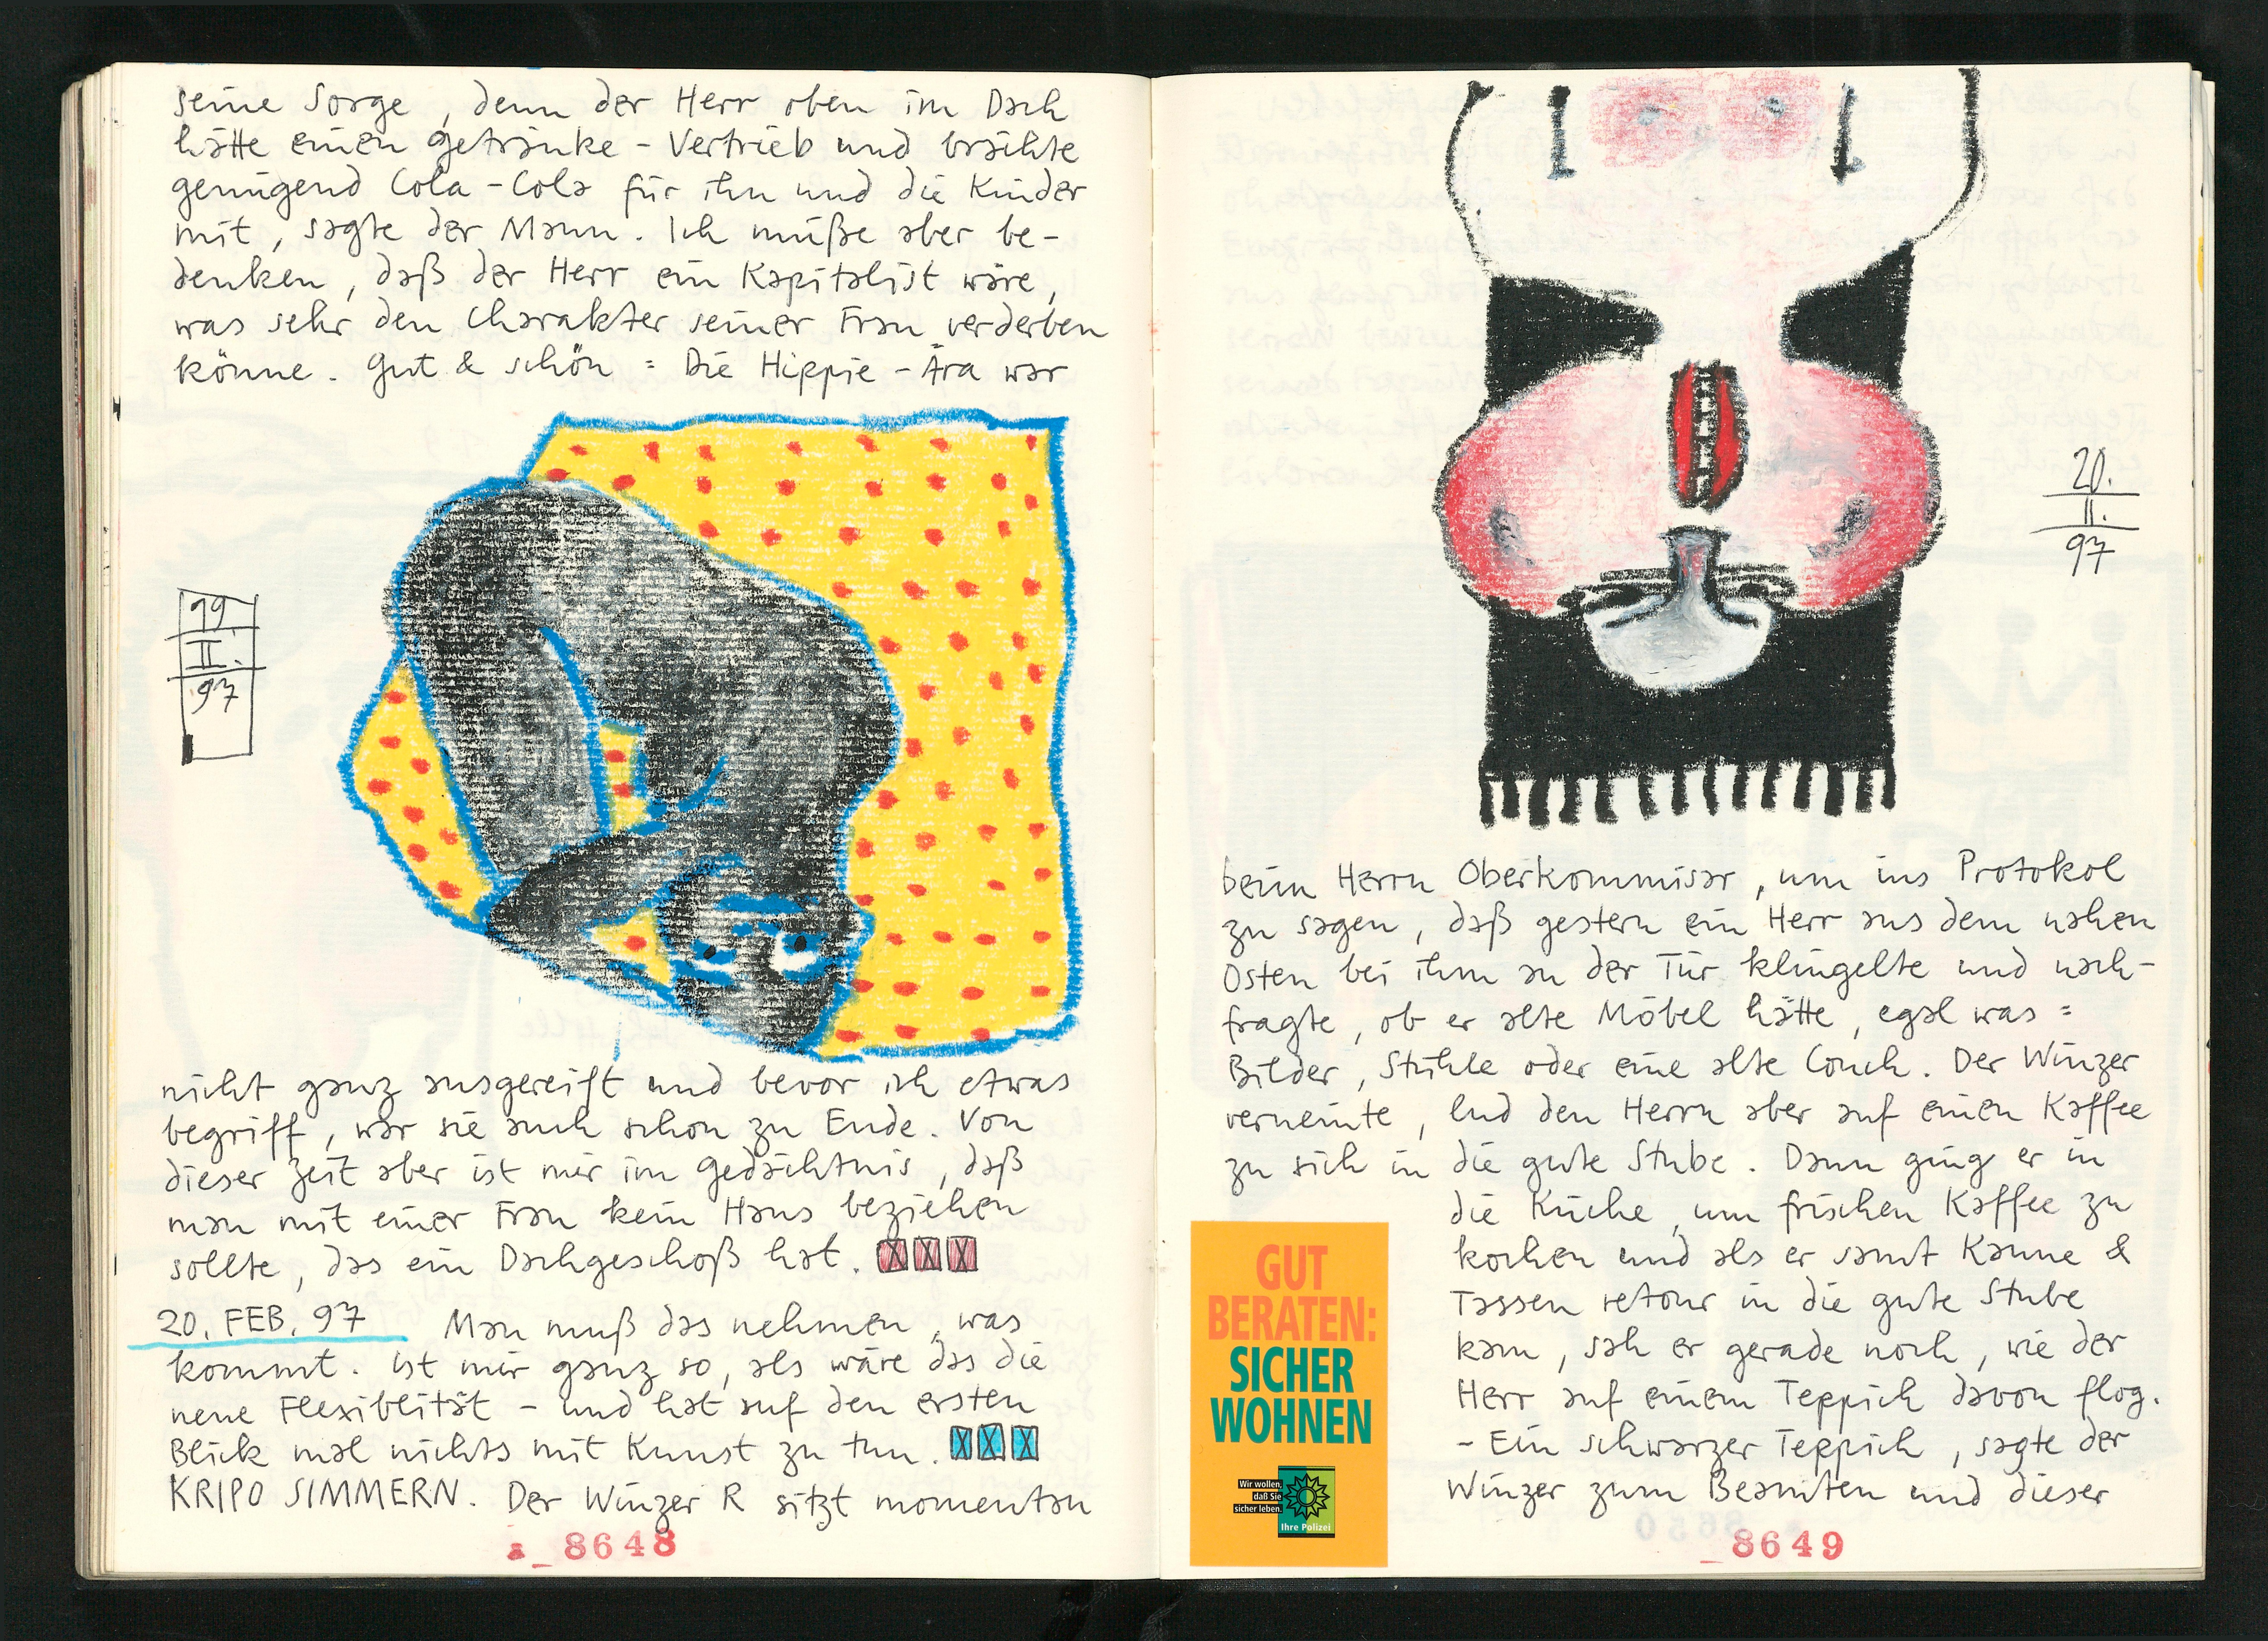 seine Sorge, denn der Herr oben im Dach
hätte einen Getränke-Vertrieb und brächte
genügend Cola-Cola für ihn und die Kinder
mit, sagte der Mann. Ich müße aber be-
denken, daß der Herr ein Kapitalist wäre,
was sehr den Charakter seiner Frau verderben
könne. Gut & schön = Die Hippie-Ära war
19
II.
97
nicht ganz ausgereift und bevor ich etwas
begriff, war sie auch schon zu Ende. Von
dieser Zeit aber ist mir im Gedächtnis, daß
man mit einer Frau kein Haus beziehen
sollte, das ein Dachgeschoß hat. XXX
20. FEB. 97 Man muß das nehmen, was
kommt. Ist mir ganz so, als wäre das die
neue Flexiblität - und hat auf den ersten
Blick mal nichts mit Kunst zu tun. XXX
KRIPO SIMMERN. Der Winzer R sitzt momentan
8648
20.
II.
97
beim Herrn Oberkommisar, um ins Protokol
zu sagen, daß gestern ein Herr aus dem nahen
Osten bei ihm an der Tür klingelte und nach-
fragte, ob er alte Möbel hätte, egal was =
Bilder, Stühle oder eine alte Couch. Der Winzer
verneinte, lud den Herrn aber auf einen Kaffee
zu sich in die gute Stube. Dann ging er in
die Küche, um frischen Kaffee zu
kochen und als er samt Kanne &
Tassen retour in die gute Stube
kam, sah er gerade noch, wie der
Herr auf einem Teppich davon flog.
- Ein schwarzer Teppich, sagte der
Winzer zum Beamten und dieser
GUT
BERATEN:
SICHER
WOHNEN
Wir wollen,
daß Sie
sicher leben.
Ihre Polizei
8649